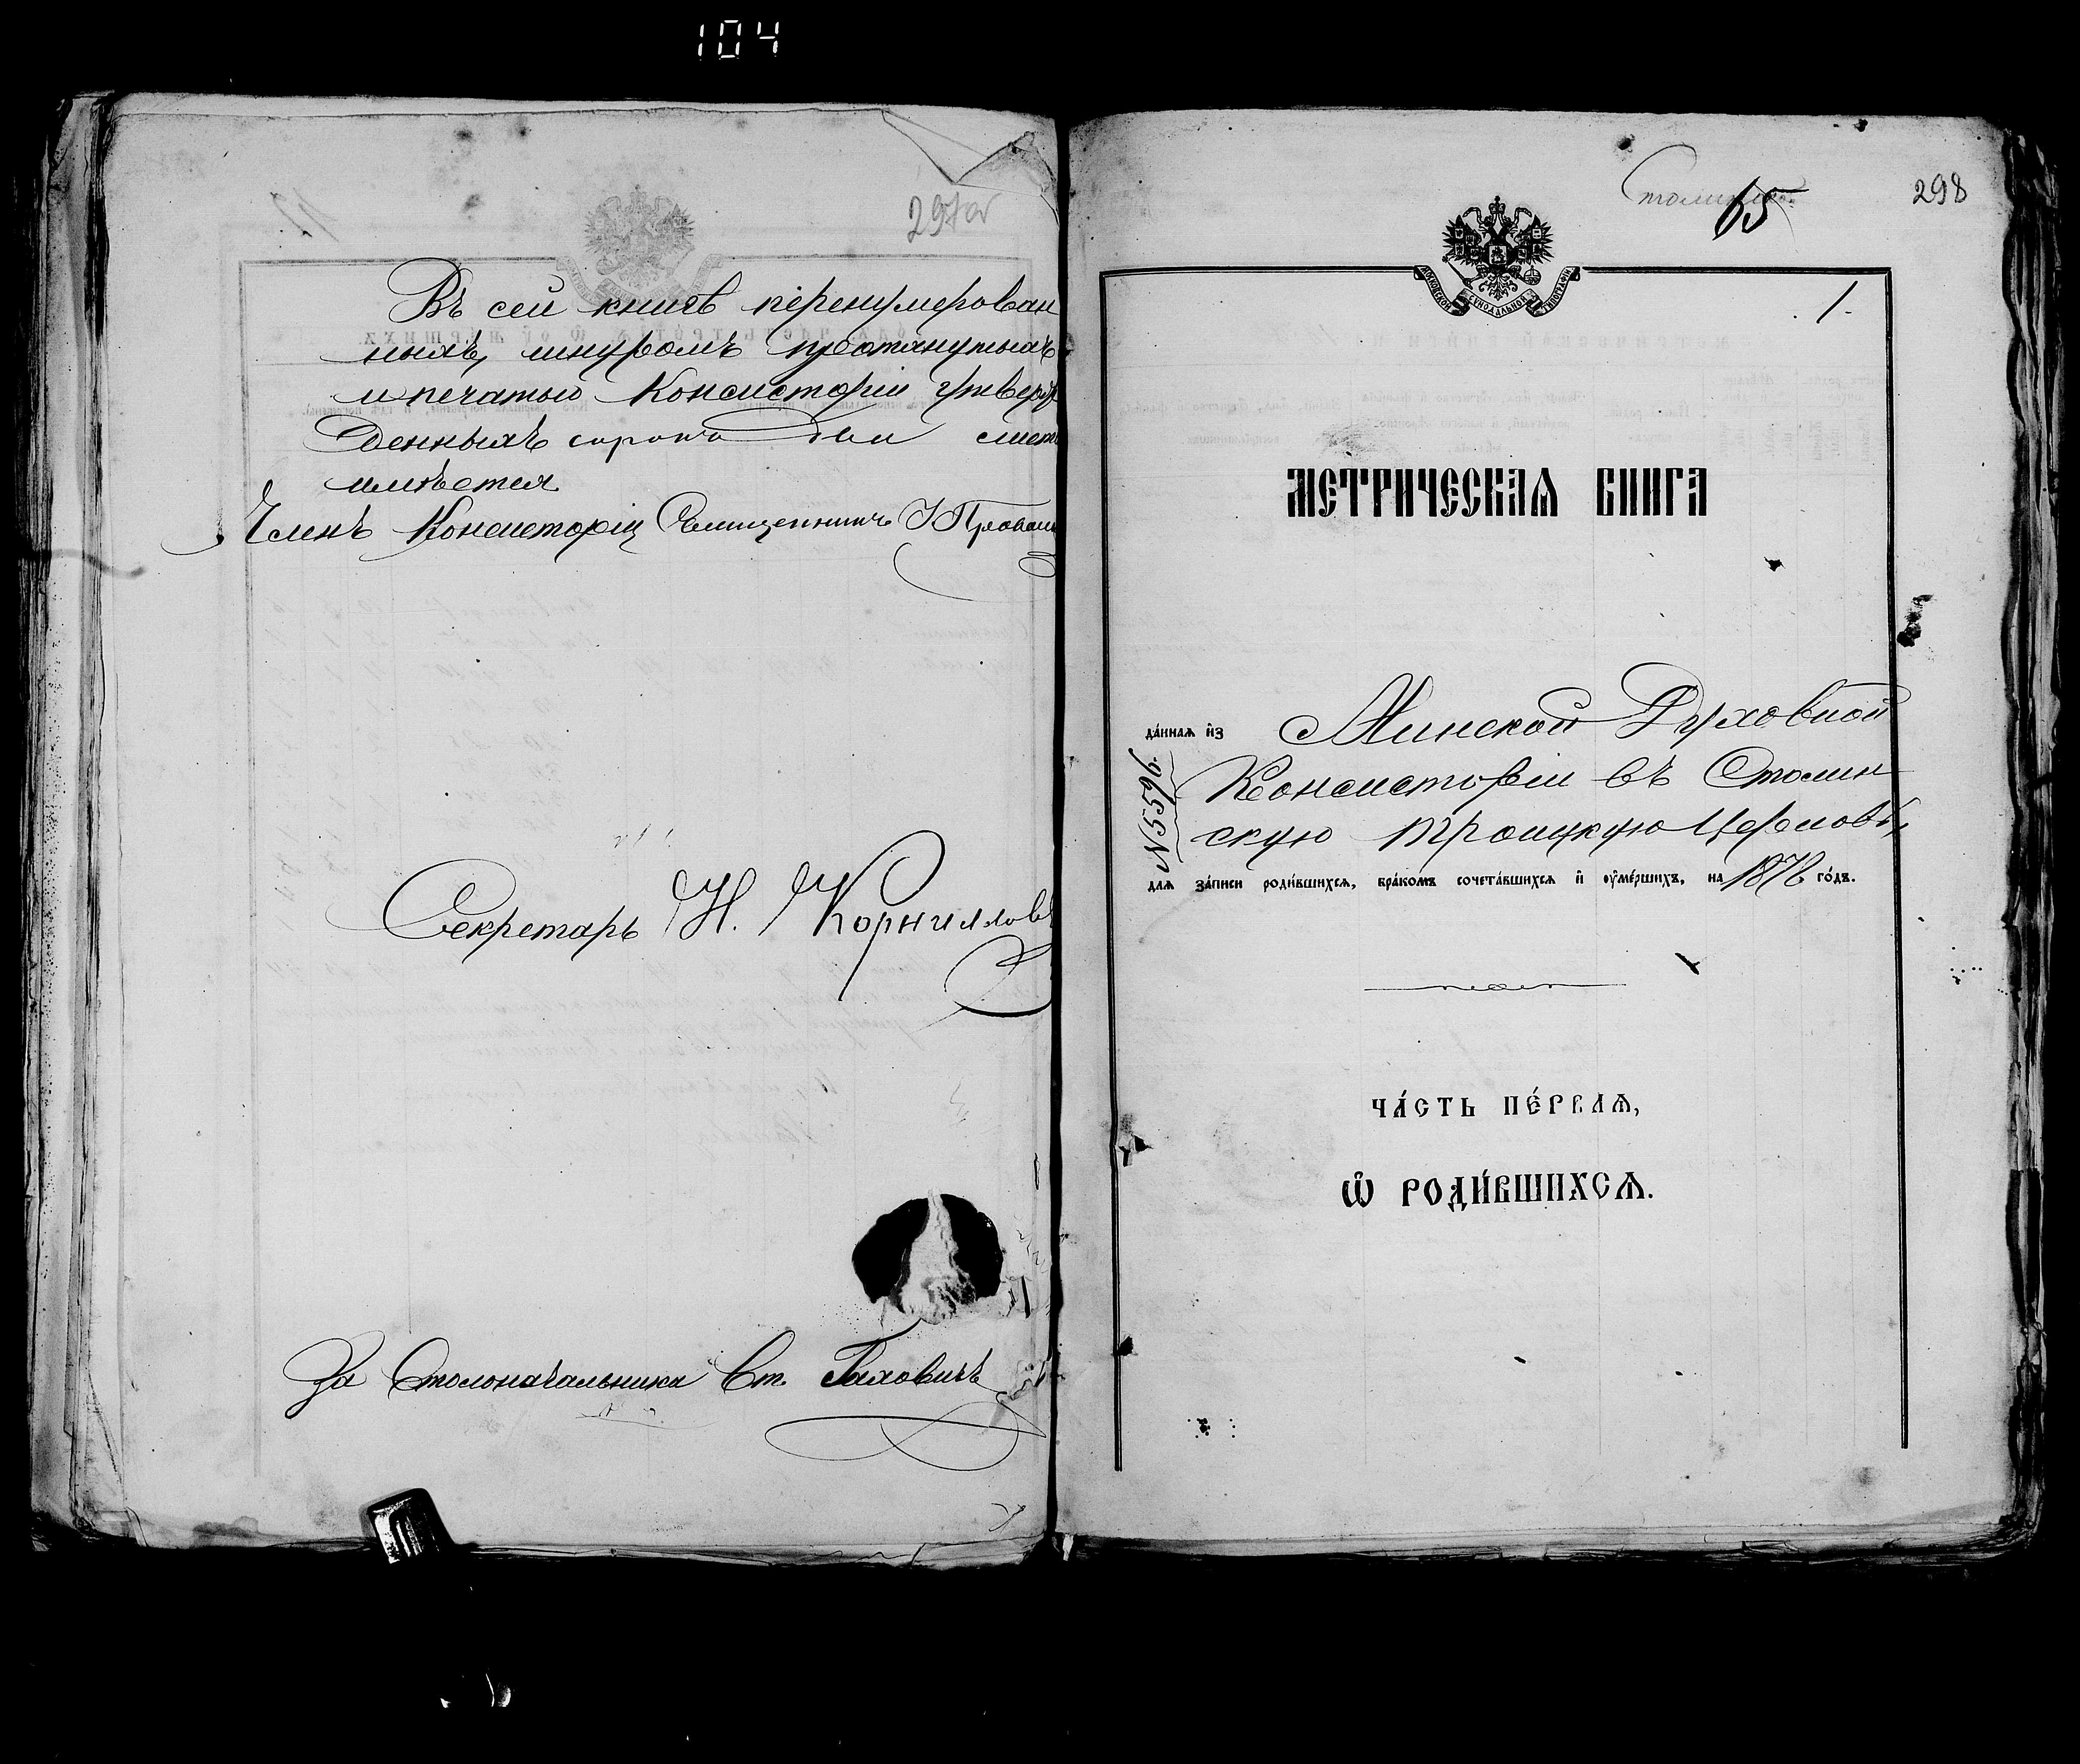 104
297об
Въ сей книгѣ перенумерован
ныхъ, шнуромъ протянутыхъ
и печатью Консисторіи утверж
денныхъ сорокъ два лист
имѣется
Членъ Консисторіи Священникъ
Секретарь Н. Корниллов
За Столоначальника Ст. Гаховичъ
65
298
МОСКОВСКОЙ СѴНОДАЛЬНОЙ ТИПОГРАФІИ
1.
МЕТРИЧЕСКАѦ КНИГА
да́ннаѧ и҆з̾ Минской Духовной
Консисторіи въ Столин
скую Троицкую Церковь,
№ 5596
длѧ за́писи роди́вшихсѧ, бра́комъ сочета́вшихсѧ и҆ оу҆ме́ршихъ, на 1876 го́дъ.
ЧА́СТЬ ПЕ́РВАѦ,
Ѽ РОДИ́ВШИХСѦ.